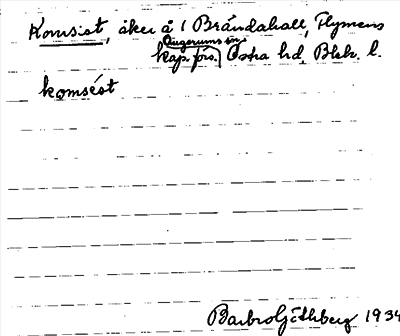 Komsist, åker å 1 Brändahall, Flymens
Augerums sn
kap. förs. Östra hd, Blek. l.
komsést
Barbro Göthberg 1934